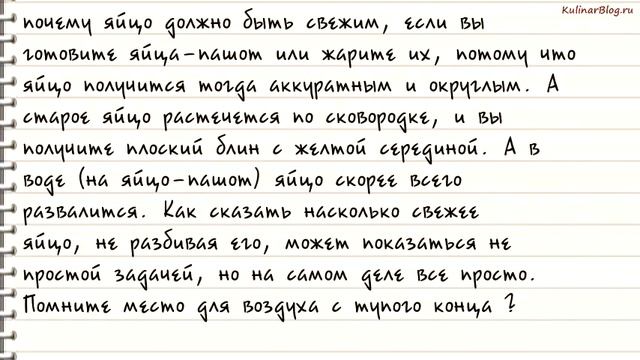 KulinarBlog.ru
почему яйцо должно быть свежим, если вы
готовите яйца-пашот или жарите их, потому что
яйцо получится тогда аккуратным и округлым. А
старое яйцо растечется по сковородке, и вы
получите плоский блин с желтой серединой. А в
воде (на яйцо-пашот) яйцо скорее всего
развалится. Как сказать насколько свежее
яйцо, не разбивая его, может показаться не
простой задачей, но на самом деле все просто.
Помните место для воздуха с тупого конца ?